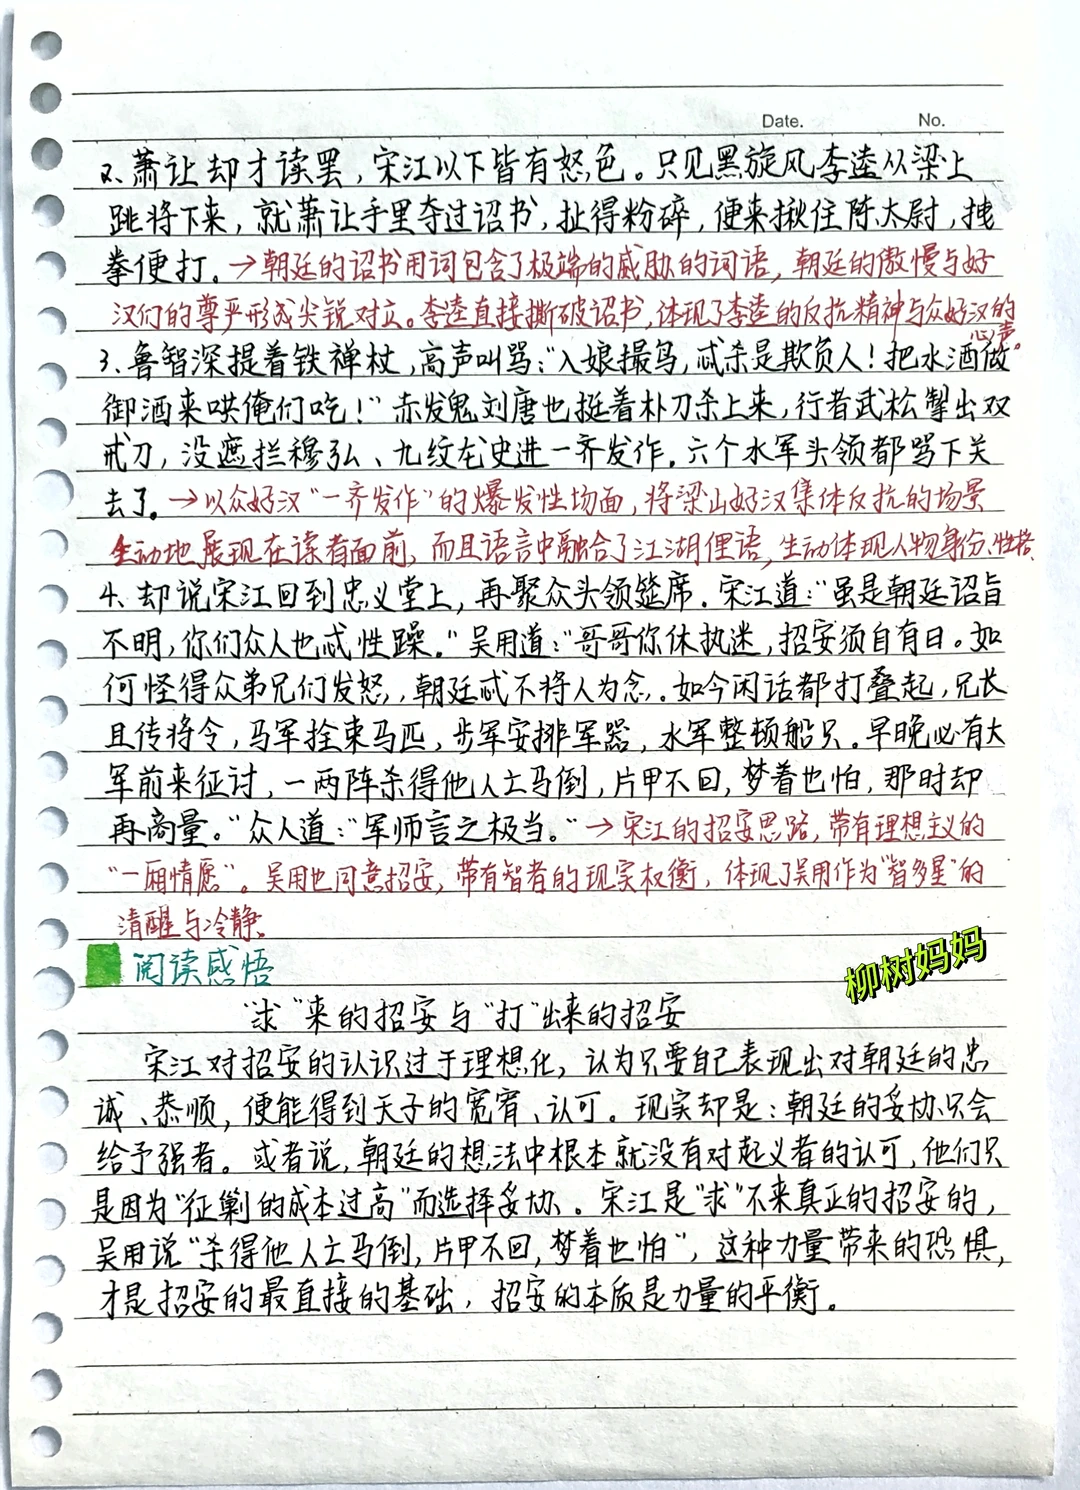 Date.
No.
2、萧让却才读罢，宋江以下皆有怒色。只见黑旋风李逵从梁上
跳将下来，就萧让手里夺过诏书，扯得粉碎，便来揪住陈太尉，拽
拳便打。→朝廷的诏书用词包含了极端的威胁的词语，朝廷的傲慢与好
汉们的尊严形成尖锐对立。李逵直接撕破诏书，体现了李逵的反抗精神与众好汉的
心声。
3、鲁智深提着铁禅杖，高声叫骂："入娘撮鸟，忒杀是欺负人！把水酒做
御酒来哄俺们吃！"赤发鬼刘唐也挺着朴刀杀上来，行者武松掣出双
戒刀，没遮拦穆弘、九纹龙史进一齐发作。六个水军头领都骂下关
去了。→以众好汉"一齐发作"的爆发性场面，将梁山好汉集体反抗的场景
生动地展现在读者面前，而且语言中融合了江湖俚语，生动体现人物身份、性格。
4、却说宋江回到忠义堂上，再聚众头领筵席。宋江道："虽是朝廷诏旨
不明，你们众人也忒性躁。"吴用道："哥哥你休执迷，招安须自有日。如
何怪得众弟兄们发怒，朝廷忒不将人为念。如今闲话都打叠起，兄长
且传将令，马军拴束马匹，步军安排军器，水军整顿船只。早晚必有大
军前来征讨，一两阵杀得他人亡马倒，片甲不回，梦着也怕，那时却
再商量。"众人道："军师言之极当。"→宋江的招安思路，带有理想主义的
"一厢情愿"。吴用也同意招安，带有智者的现实权衡，体现了吴用作为"智多星"的
清醒与冷静。
阅读感悟
柳树妈妈
"求"来的招安与"打"出来的招安
宋江对招安的认识过于理想化，认为只要自己表现出对朝廷的忠
诚、恭顺，便能得到天子的宽宥、认可。现实却是：朝廷的妥协只会
给予强者。或者说，朝廷的想法中根本就没有对起义者的认可，他们只
是因为"征剿的成本过高"而选择妥协。宋江是"求"不来真正的招安的，
吴用说"杀得他人亡马倒，片甲不回，梦着也怕"，这种力量带来的恐惧，
才是招安的最直接的基础，招安的本质是力量的平衡。